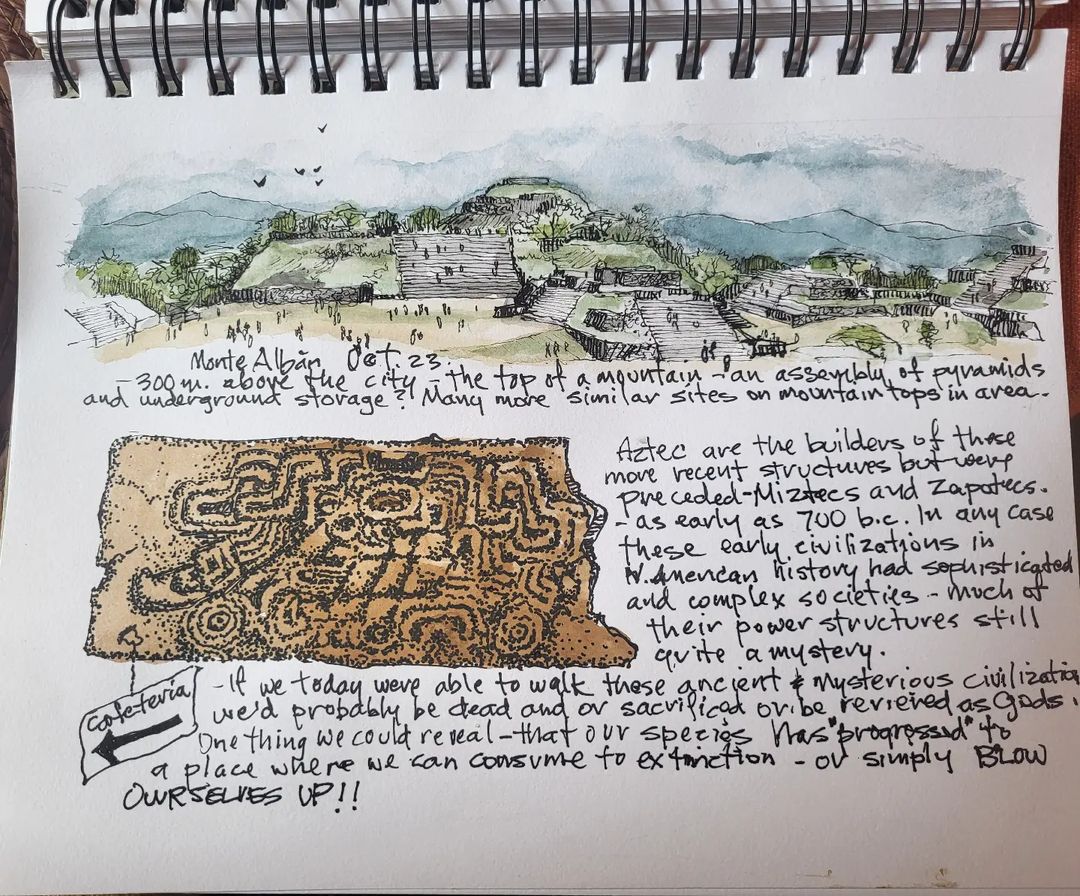 Monte Albán Oct. 23.
- 300 m. above the city - the top of a mountain - an assembly of pyramids
and underground storage? Many more similar sites on mountain tops in area.
Aztec are the builders of these
more recent structures but were
preceded - Miztecs and Zapotecs.
- as early as 700 b.c. In any case
these early civilizations in
N. American history had sophisticated
and complex societies - much of
their power structures still
quite a mystery.
cafeteria
- If we today were able to walk these ancient & mysterious civilization
we'd probably be dead and or sacrificed or be reviered as Gods.
One thing we could reveal - that our species has "progressed" to
a place where we can consume to extinction - or simply BLOW
OURSELVES UP!!